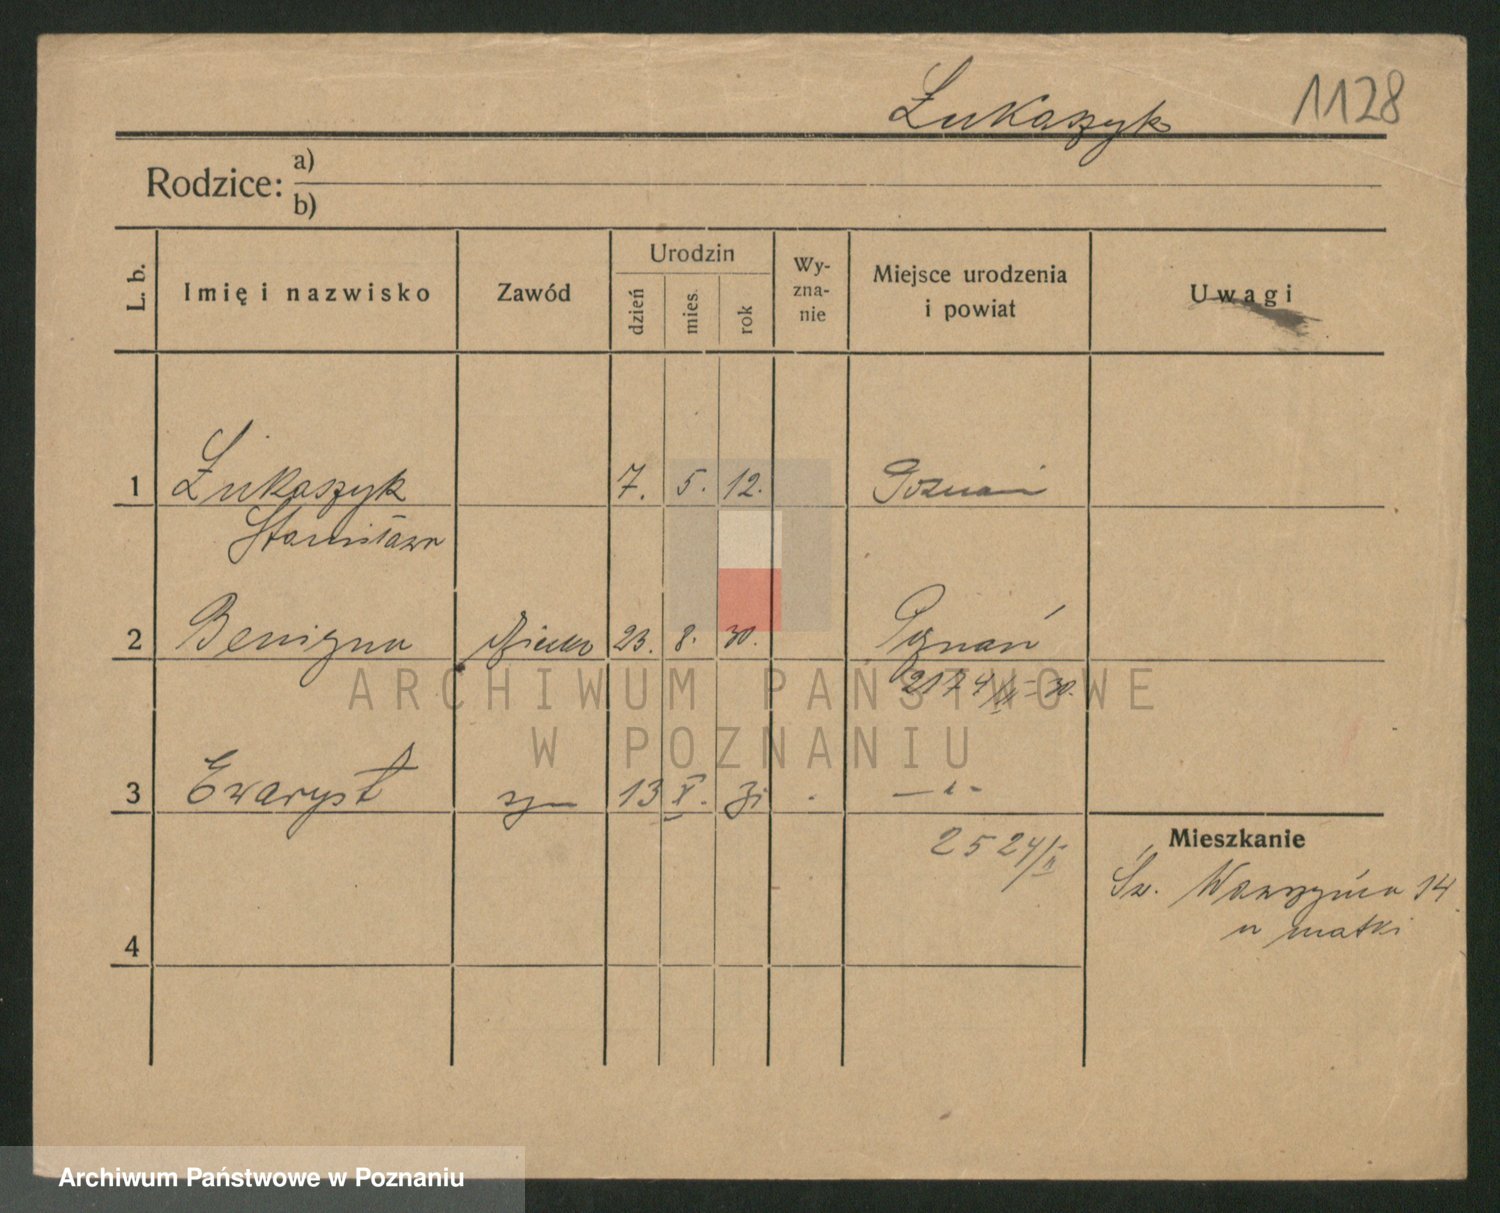 Łukaszyk 1128
Rodzice: a)
b)
L. b.
Imię i nazwisko
Zawód
Urodzin
dzień
mies.
rok
Wy-
zna-
nie
Miejsce urodzenia
i powiat
Uwagi
1 Łukaszyk 7. 5. 12. Poznań
Stanisława
2 Benigna dziecko 23. 8. 30. Poznań
2174/II-30.
3 Ewaryst syn 13 V. 31 . — " -
2524/II
4
Mieszkanie
Św. Wawrzyńca 14
u matki
ARCHIWUM PAŃSTWOWE
W POZNANIU
Archiwum Państwowe w Poznaniu